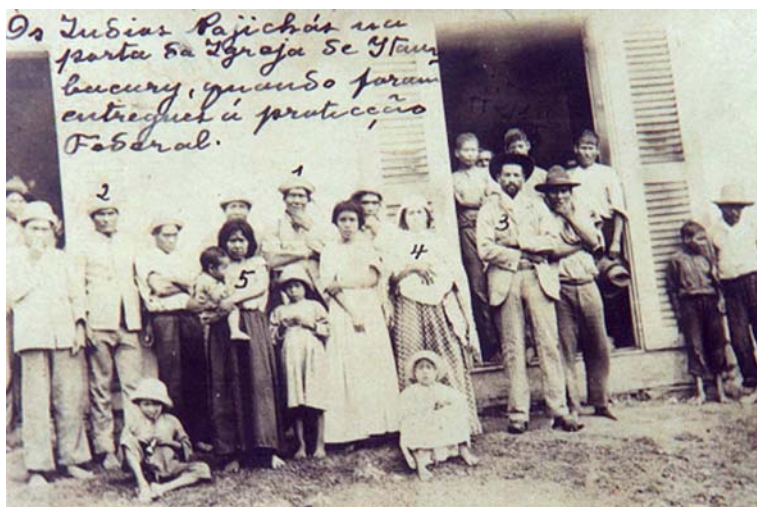 Os Indios Pajichás na
porta da Igreja de Itam
bacury, quando foram
entregues á protecção
Federal.
1
2
3
4
5